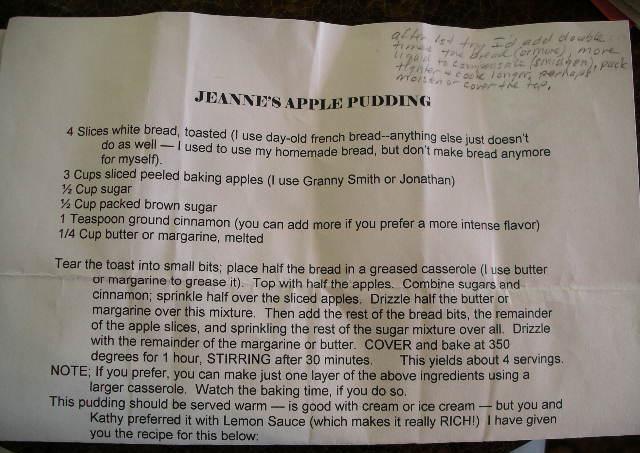 after 1st try I'd add double
times the bread (or more), more
liquid to compensate (smidgen), pack
tighter & cook longer, perhaps
moisten or cover the top.
JEANNE'S APPLE PUDDING
4 Slices white bread, toasted (I use day-old french bread--anything else just doesn't
do as well — I used to use my homemade bread, but don't make bread anymore
for myself).
3 Cups sliced peeled baking apples (I use Granny Smith or Jonathan)
½ Cup sugar
½ Cup packed brown sugar
1 Teaspoon ground cinnamon (you can add more if you prefer a more intense flavor)
1/4 Cup butter or margarine, melted
Tear the toast into small bits; place half the bread in a greased casserole (I use butter
or margarine to grease it). Top with half the apples. Combine sugars and
cinnamon; sprinkle half over the sliced apples. Drizzle half the butter or
margarine over this mixture. Then add the rest of the bread bits, the remainder
of the apple slices, and sprinkling the rest of the sugar mixture over all. Drizzle
with the remainder of the margarine or butter. COVER and bake at 350
degrees for 1 hour, STIRRING after 30 minutes. This yields about 4 servings.
NOTE; If you prefer, you can make just one layer of the above ingredients using a
larger casserole. Watch the baking time, if you do so.
This pudding should be served warm — is good with cream or ice cream — but you and
Kathy preferred it with Lemon Sauce (which makes it really RICH!) I have given
you the recipe for this below: